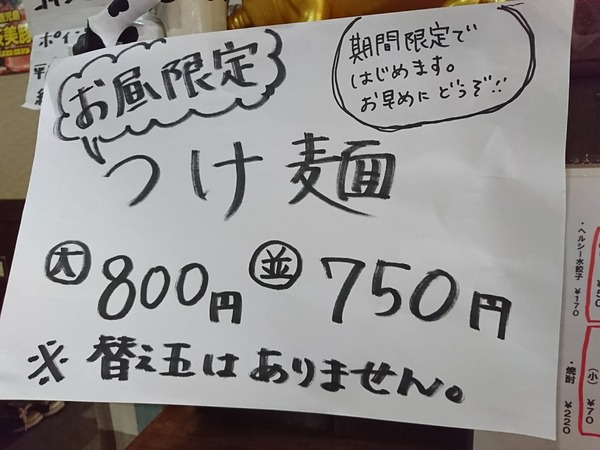 ポイン
お昼限定
期間限定で
はじめます。
お早めにどうぞ!!
つけ麺
大 800円 並 750円
※ 替え玉はありません。
・ヘルシー水餃子 ¥170
・焼酎 ¥220
(小) ¥70